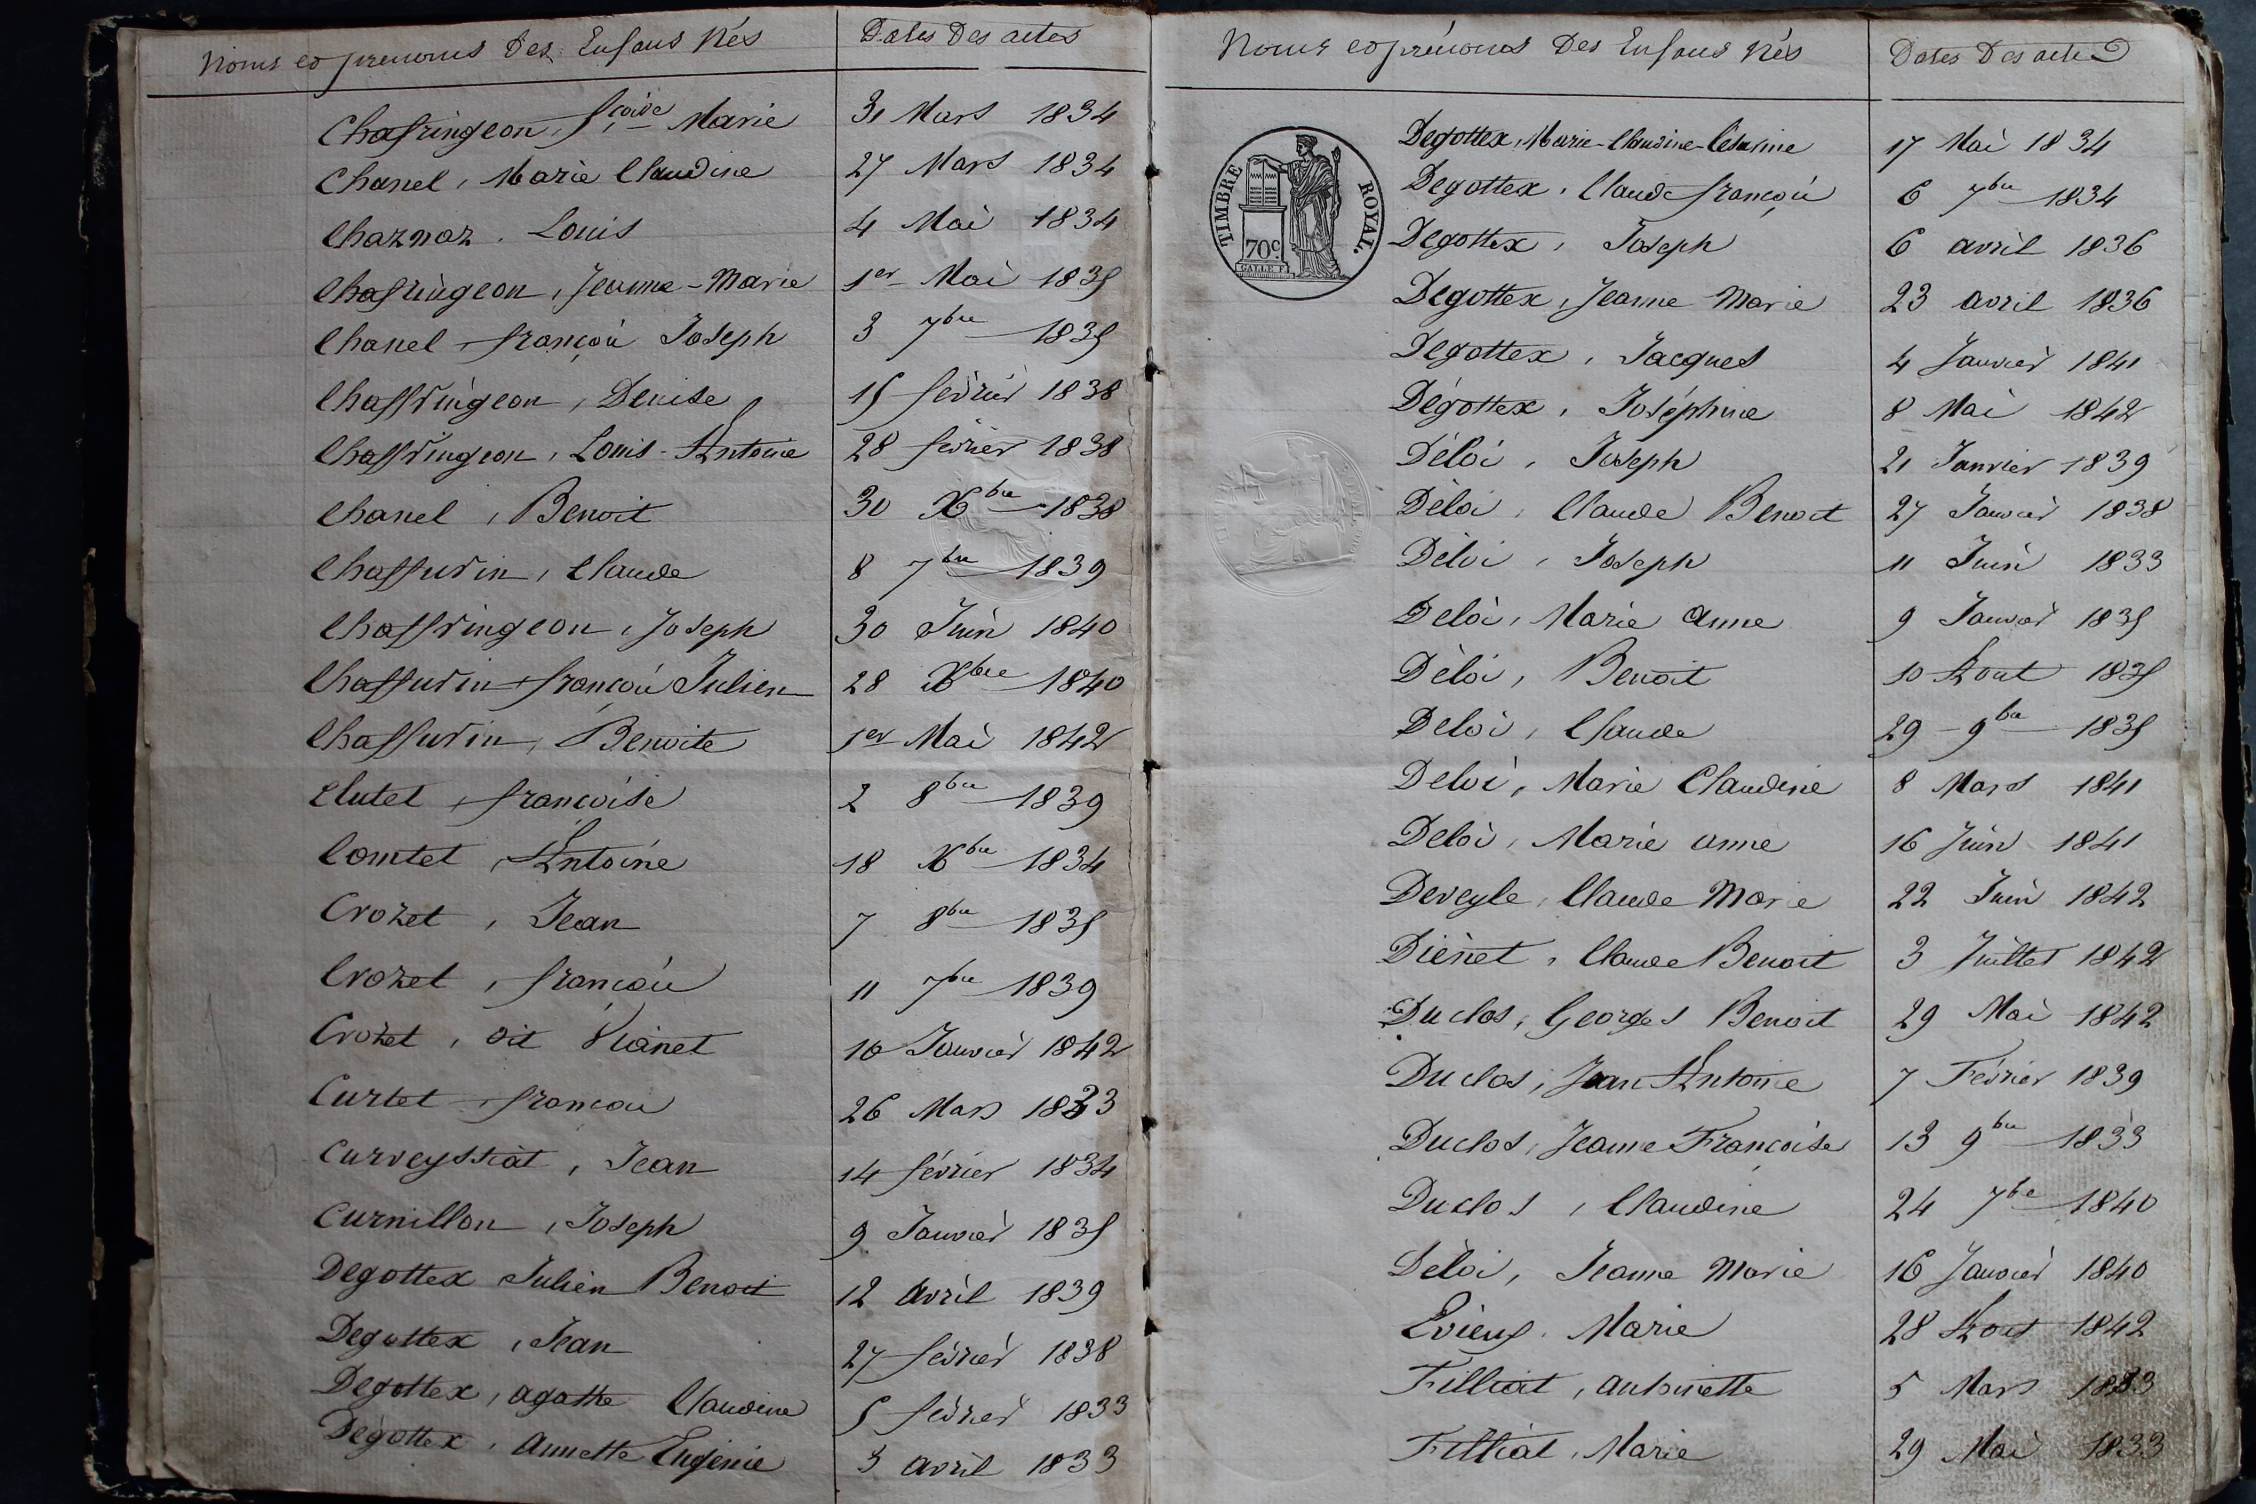 Noms et prénoms Des Enfans Nés Dates Des actes
Chafringeon, fçoise Marie 31 Mars 1834
Chanel, Marie Claudine 27 Mars 1834
Charnoz, Louis 4 Mai 1834
Chafringeon, Jeanne-Marie 1er Mai 1835
Chanel, françois Joseph 3 7bre 1835
Chaffringeon, Denise 15 février 1838
Chaffringeon, Louis-Antoine 28 février 1838
Chanel, Benoit 30 Xbre 1838
Chaffurin, Claude 8 7bre 1839
Chaffringeon, Joseph 30 Juin 1840
Chaffurin françois Julien 28 Xbre 1840
Chaffurin, Benoite 1er Mai 1842
Clutet, françoise 2 8bre 1839
Comtet, Antoine 18 Xbre 1834
Crozet, Jean 7 8bre 1835
Crozet, françois 11 7bre 1839
Crozet, dit Vianet 10 Janvier 1842
Curtet, françois 26 Mars 1833
Curveyssiat, Jean 14 février 1834
Curnillon, Joseph 9 Janvier 1835
Degottex Julien Benoit 12 avril 1839
Degottex, Jean 27 février 1838
Degottex, agathe Claudine 5 février 1833
Dégottex, Annette Eugénie 3 avril 1833
Noms et prénoms Des Enfans Nés Dates Des actes
TIMBRE ROYAL.
70c.
Degottex, Marie-Claudine-Césarine 17 Mai 1834
Degottex, Claude françois 6 7bre 1834
Degottex, Joseph 6 avril 1836
Dégottex, Jeanne Marie 23 avril 1836
Dégottex, Jacques 4 Janvier 1841
Dégottex, Joséphine 8 Mai 1842
Déloi, Joseph 21 Janvier 1839
Déloi, Claude Benoit 27 Janvier 1838
Déloi, Joseph 11 Juin 1833
Deloi, Marie anne 9 Janvier 1835
Déloi, Benoit 10 Aout 1835
Deloi, Claude 29 9bre 1835
Deloi, Marie Claudine 8 Mars 1841
Deloi, Marie anne 16 Juin 1841
Deveyle, Claude Marie 22 Juin 1842
Diénet, Claude Benoit 3 Juillet 1842
Duclos, Georges Benoit 29 Mai 1842
Duclos, Jean Antoine 7 Février 1839
Duclos, Jeanne Françoise 13 9bre 1833
Duclos, Claudine 24 7bre 1840
Déloi, Jeanne Marie 16 Janvier 1840
Evieuf, Marie 28 Aout 1842
Filliat, Antoinette 5 Mars 1833
Filliat, Marie 29 Mai 1833